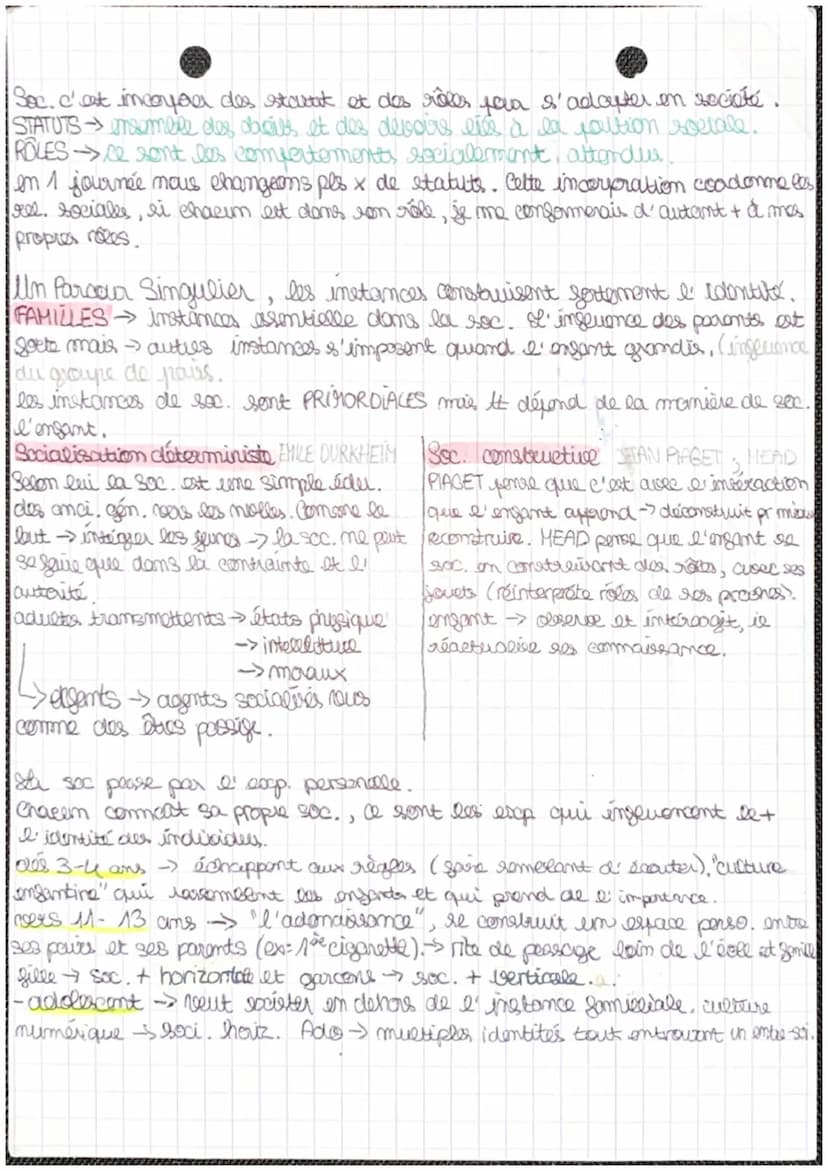 Soc. c'est incorporer des statut et des rôles pour s'adapter en société.
STATUTS → ensemble des droits et des devoirs liés à la position sociale.
RÔLES → ce sont les comportements socialement attendu.
en 1 journée nous changeons pls x de statuts. Cette incorporation coordonne les
rel. sociales, si chacun est dans son rôle, je me conformerais d'autant + à mes
propres rôles.
Un Parcour Singulier, les instances construisent fortement l'identité.
FAMILLES → instances essentielle dans la soc. L'influence des parents est
forte mais → autres instances s'imposent quand l'enfant grandis, (influence
du groupe de pairs.
les instances de soc. sont PRIMORDIALES mais tt dépend de la manière de soc.
l'enfant.
Socialisation déterministe EMILE DURKHEIM
Selon lui la soc. est une simple édu.
des anci. gén. vers les nvlles. Comme le
but → intégrer les jeunes → la soc. ne peut
se faire que dans la contrainte et l'
autorité.
adultes transmettents → états physique
→ intellectuel
→ moraux
↳ enfants → agents socialisés vus
comme des êtres passifs.
Soc. constructive JEAN PIAGET ; MEAD
PIAGET pense que c'est avec l'intéraction
que l'enfant apprend → déconstruit pr mieux
reconstruire. MEAD pense que l'enfant se
soc. en construisant des rôles, avec ses
jouets (réinterprète rôles de ses proches).
enfant → observe et intéragit, il
réactualise ses connaissance.
La soc passe par l'exp. personelle.
Chacun connaît sa propre soc., ce sont les exp qui influencent le +
l'identité des individus.
dès 3-4 ans → échappent aux règles (faire semblant d'écouter), "culture
enfantine" qui rassemblent les enfants et qui prend de l'importance.
vers 11-13 ans → "l'adonaissance", se construit un espace perso. entre
ses pairs et ses parents (ex= 1ère cigarette). → rite de passage loin de l'école et famille
fille → soc. + horizontale et garçons → soc. + verticale.
- adolescent → veut exister en dehors de l'instance familiale. culture
numérique → soci. horiz. Ado → multiples identités tout entrouvant un entre-soi.